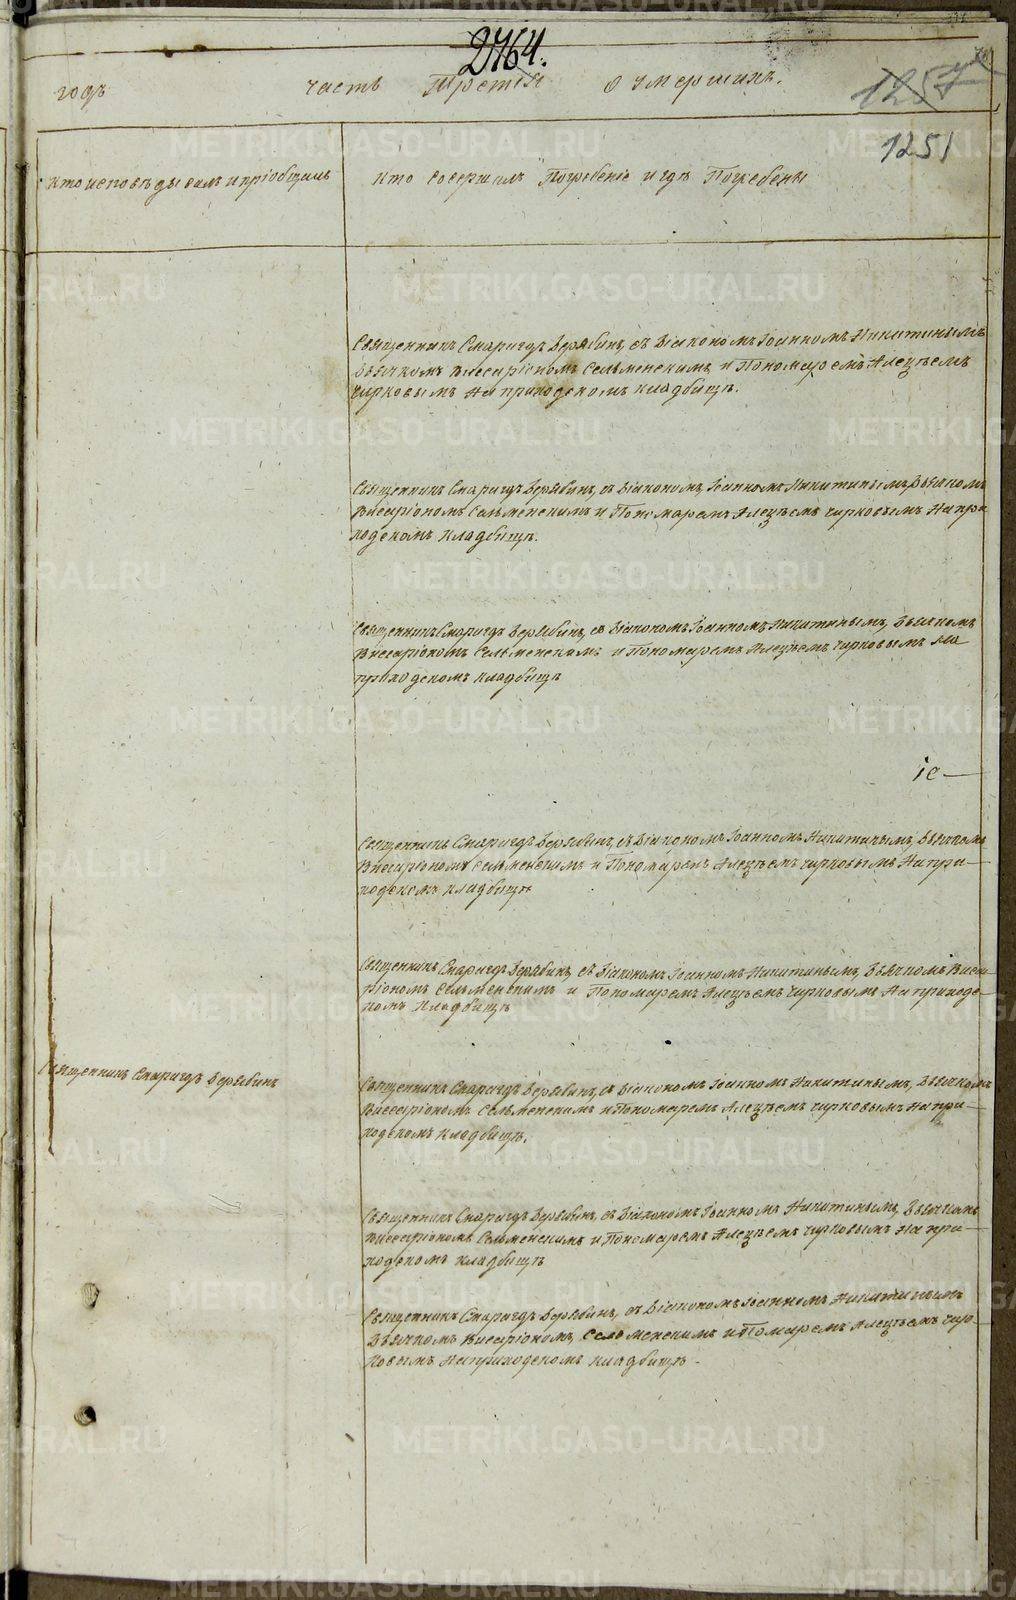 2764.
годъ часть Третія о умершихъ.
1257
1251
Кто исповѣдывалъ и пріобщалъ
Кто совершилъ Погребеніе и гдѣ Погребены
Священникъ Смарагдъ Дерябинъ, съ Діакономъ Іоанномъ Никитинымъ
Дьячкомъ Висаріономъ Сельменскимъ и Пономаремъ Алеѯѣемъ
Чирковымъ на приходскомъ кладбищѣ.
Священникъ Смарагдъ Дерябинъ, съ Діакономъ, Іоанномъ Никитинымъ Дьячкомъ
Висаріономъ Сельменскимъ и Пономаремъ Алеѯѣемъ Чирковымъ На при
ходскомъ кладбищѣ.
Священникъ Смарагдъ Дерябинъ, съ Діакономъ Іоанномъ Никитинымъ, Дьячкомъ
Висаріономъ Сельменскимъ и Пономаремъ Алеѯѣемъ Чирковымъ на
приходскомъ кладбищѣ
іе
Священникъ Смарагдъ Дерябинъ, съ Діакономъ Іоанномъ Никитинымъ, Дьячкомъ
Висаріономъ Сельменскимъ и Пономаремъ Алеѯѣемъ Чирковымъ На при-
ходскомъ кладбищѣ
Священникъ Смарагдъ Дерябинъ, съ Діакономъ Іоанномъ Никитинымъ, Дьячкомъ Виса-
ріономъ Сельменскимъ и Пономаремъ Алеѯѣемъ Чирковымъ На приходс-
комъ кладбищѣ
Священникъ Смарагдъ Дерябинъ
Священникъ Смарагдъ Дерябинъ, съ Діакономъ Іоанномъ Никитинымъ, Дьячкомъ
Висаріономъ Сельменскимъ и Пономаремъ Алеѯѣемъ Чирковымъ На при-
ходскомъ кладбищѣ.
Священникъ Смарагдъ Дерябинъ, съ Діакономъ Іоанномъ Никитинымъ, Дьячкомъ
Висаріономъ Сельменскимъ и Пономаремъ Алеѯѣемъ Чирковымъ На при-
ходскомъ кладбищѣ
Священникъ Смарагдъ Дерябинъ, съ Діакономъ Іоанномъ Никитинымъ
Дьячкомъ Висаріономъ, Сельменскимъ и Помаремъ Алеѯѣемъ Чир-
ковымъ На приходскомъ кладбищѣ.
METRIKI.GASO-URAL.RU